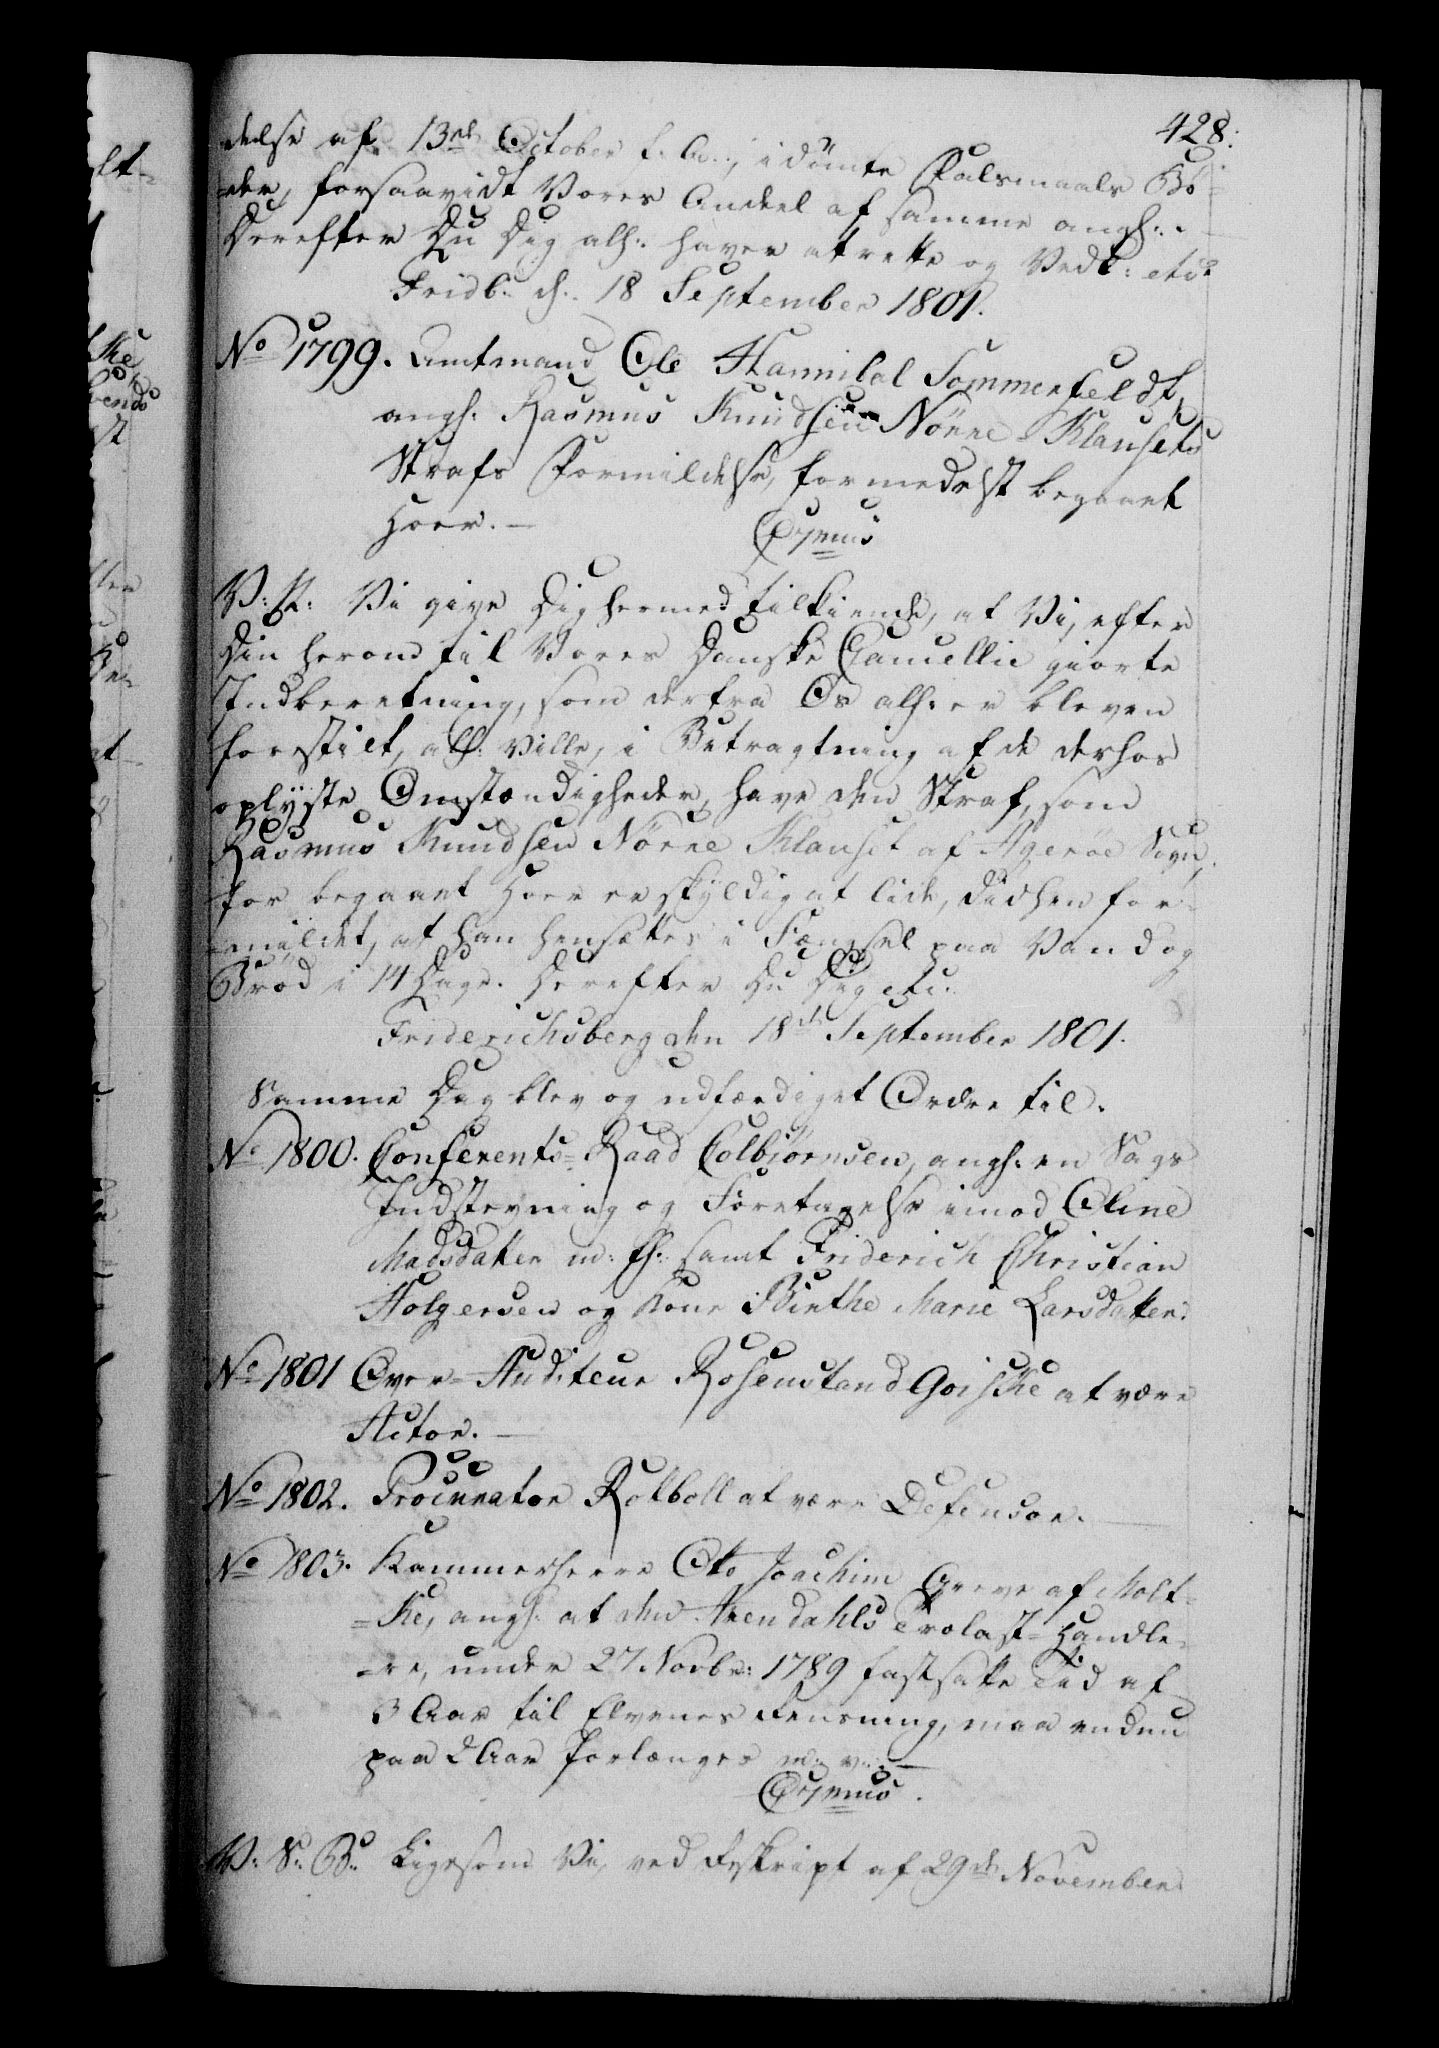 428.
delse af 13de October f. A., idømte Falsmaals Bö-
der, forsaavidt Vores Andeel af samme angh:.
Derefter Du Dig alh: haver at rette og Vedb: etc.
Fridb: d: 18 September 1801.
No 1799. Amtmand Ole Hannibal Sommerfeldt,
angh. Rasmus Knudsen Nörre Klausets
Strafs Formildelse, formedelst begaaet
Hoer. —
V: K: Vi give Dig hermed tilkiende, at Vi, efter
Din herom til Vores Danske Cancellie giorte
Indberetning, som derfra Os alh: er bleven
forestilt, alh: ville, i Betragtning af de derhos
oplyste Omstændigheder, have den Straf, som
Rasmus Knudsen Nörre Klauset af Agerøe Sogn,
for begaaet Hoer er skyldig at lide, didhen for-
-mildet, at han hensættes i Fængsel paa Vand og
Bröd i 14 Dage. Derefter Du Dig etc.
Friderichsberg den 18de September 1801.
Samme Dag blev og udfærdiget Ordre til.
No 1800. Conferents-Raad Colbiørnsen, angh: en Sags
Indstevning og Foretagelse imod Oline
Madsdatter m: fl: samt Friderich Christian
Holgersen og Kone Birthe Marie Larsdatter.
No 1801 Over-Auditeur Rosenstand Goiske at være
Actor. —
No 1802. Procurator Rotboll at være Defensor. —
No 1803. Kammerherre Otto Joachim Greve af Molt-
=ke, angh: at den Arendahls Trælast-Handle-
-re, under 27 Novbr: 1789 fastsatte Tid af
3 Aar til Elvenes Rensning, maa endnu
paa 2 Aar forlænges m: v: —
V: S: B: Ligesom Vi, ved Reskript af 29de November